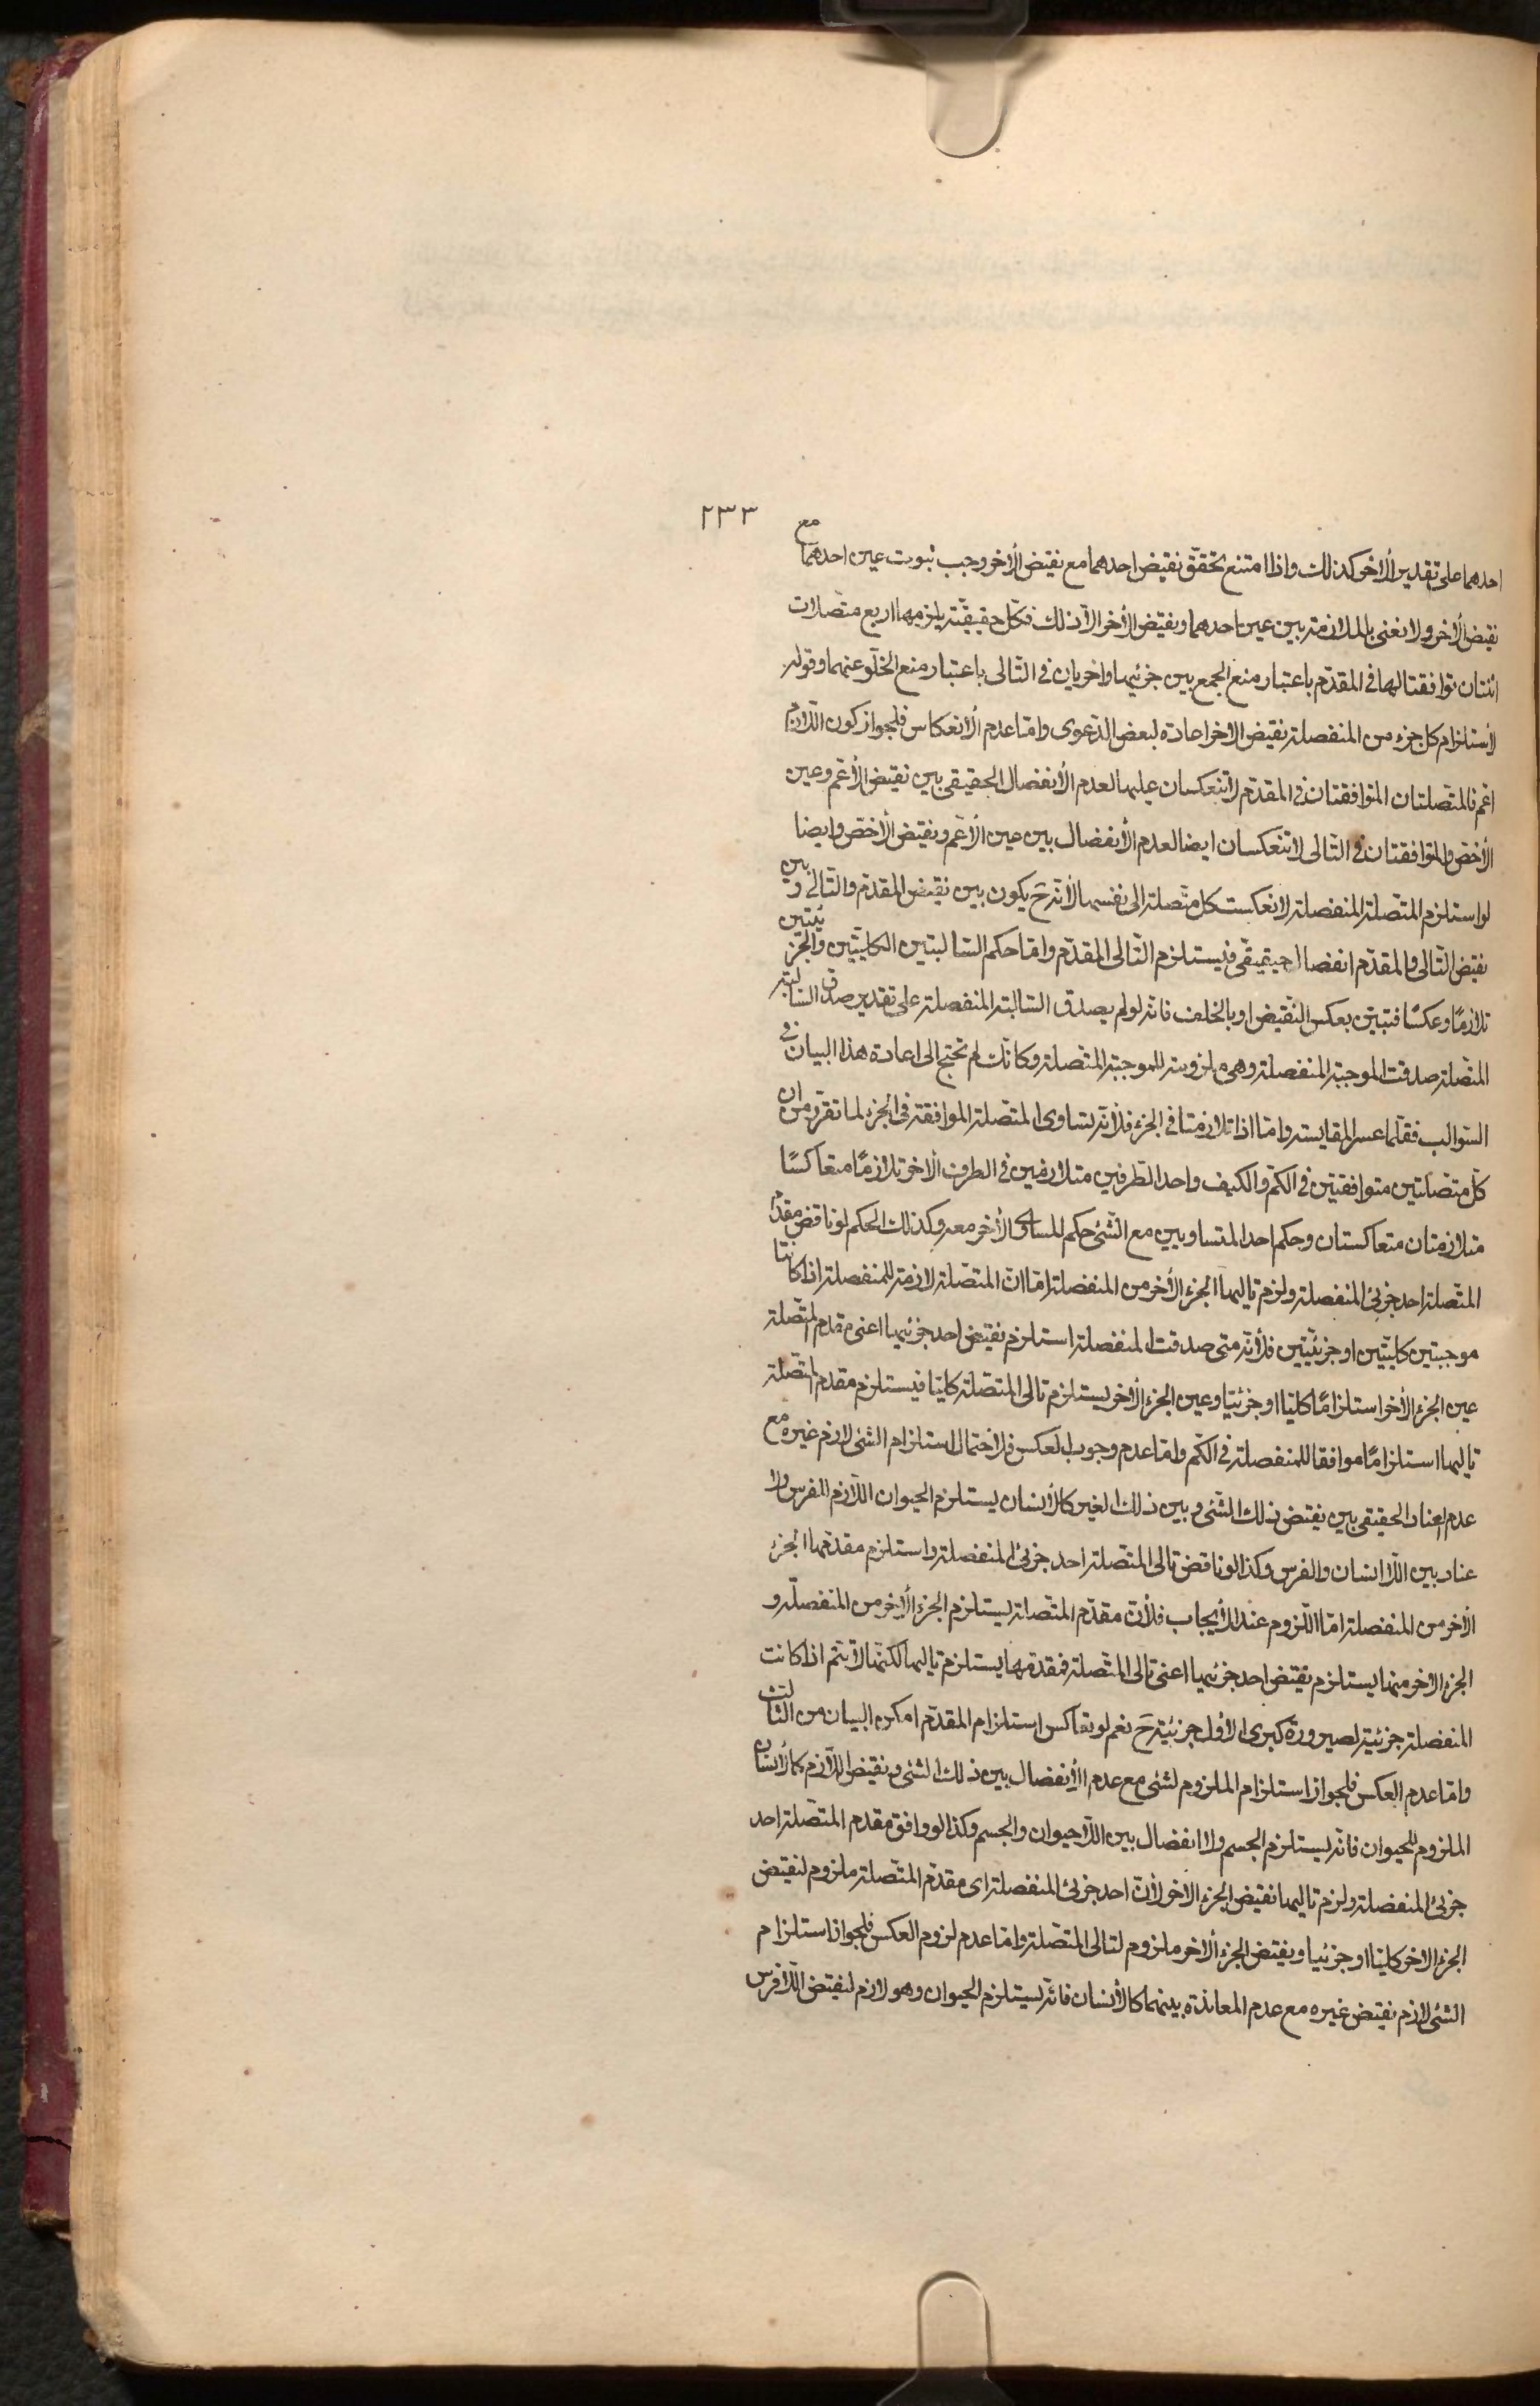 ٢٣٣
احدهما على تقدير الأخر كذلك واذا امتنع تحقّق نقيض احدهما مع نقيض الأخر وجب ثبوت عين احدهما مع
نقيض الأخر ولا نعنى بالملازمة بين عين احدهما ونقيض الأخر الّا ذلك فكلّ حقيقيّة يلزمها اربع متّصلات
اثنتان توافقتا لها فى المقدّم باعتبار منع الجمع بين جزئيها واخريان فى التّالى باعتبار منع الخلّو عنهما وقوله
لأستلزام كلّ جزء من المنفصلة نقيض الاخر اعادة لبعض الدّعوى وامّا عدم الأنعكاس فلجواز كون اللّازم
اعّم فالمتّصلتان المتوافقتان فى المقدّم لا تنعكسان عليها لعدم الأنفصال الحقيقى بين نقيض الأعّم وعين
الأخصّ والمتوافقتان فى التّالى لا تنعكسان ايضا لعدم الأنفصال بين عين الأعّم ونقيض الأخصّ وايضا
لو استلزم المتّصلة المنفصلة لانعكست كلّ متّصلة الى نفسها لأنّه ح يكون بين نقيض المقدّم والتّالى وبين
نقيض التّالى والمقدّم انفصال حقيقىّ فيستلزم التّالى المقدّم وامّا حكم السّالبتين الكليّتين والجزئيّتين
تلازمًا وعكسًا فتبيّن بعكس النّقيض او بالخلف فانّه لو لم يصدق السّالبة المنفصلة على تقدير صدق السّالبة
المتّصلة صدقت الموجبة المنفصلة وهى ملزومة للموجبة المتّصلة وكانّك لم تحتج الى اعادة هذا البيان فى
السّوالب فقلّما عسر المقايسة وامّا اذا تلازمتا فى الجزء فلأنّه تساوى المتّصلة الموافقة فى الجزء لما تقرّر من ان
كلّ متّصلتين متوافقتين فى الكمّ والكيف واحد الطّرفين متلازمين فى الطرف الأخر تلازمًا متعاكسًا
متلازمتان متعاكستان وحكم احد المتساويين مع الشّئ حكم المساوى الأخر معه وكذلك الحكم لو ناقض مقدّم
المتّصلة احد جزئى المنفصلة ولزم تاليها الجزء الأخر من المنفصلة امّا انّ المتّصلة لازمة للمنفصلة اذا كانتا
موجبتين كليّتين او جزئيّتين فلأنّه متى صدقت المنفصلة استلزم نقيض احد جزئيها اعنى مقدم المتّصلة
عين الجزء الأخر استلزامًا كليّا او جزئيّا وعين الجزء الأخر يستلزم تالى المتّصلة كليّا فيستلزم مقدم المتّصلة
تاليها استلزامًا موافقا للمنفصلة فى الكمّ وامّا عدم وجوب العكس فلأحتمال استلزام الشئ لازم غيره مع
عدم العناد الحقيقى بين نقيض ذلك الشّئ وبين ذلك الغير كالأنسان يستلزم الحيوان اللّازم للفرس ولا
عناد بين اللّا انسان والفرس وكذا لو ناقض تالى المتّصلة احد جزئى المنفصلة واستلزم مقدّمها الجزء
الأخر من المنفصلة امّا اللّزوم عند الأيجاب فلأنّ مقدّم المتّصلة يستلزم الجزء الأخر من المنفصلة و
الجزء الأخر منها يستلزم نقيض احد جزئيها اعنى تالى المتّصلة فمقدمها يستلزم تاليها لكنّها لا يتمّ اذا كانت
المنفصلة جزئيّة لصيرورة كبرى الأوّل جزئيّة ح نعم لو تعاكس استلزام المقدّم امكن البيان من الثّالث
وامّا عدم العكس فلجواز استلزام الملزوم لشئ مع عدم الأنفصال بين ذلك الشئ ونقيض اللّازم كالأنسان
الملزوم للحيوان فانّه يستلزم الجسم ولا انفصال بين اللّا حيوان والجسم وكذا لو وافق مقدم المتّصلة احد
جزئى المنفصلة ولزم تاليها نقيض الجزء الأخر لأنّ احد جزئى المنفصلة اى مقدّم المتّصلة ملزوم لنقيض
الجزء الاخر كليّا او جزئيا ونقيض الجزء الأخر ملزوم لتالى المتّصلة وامّا عدم لزوم العكس فلجواز استلزام
الشئ لازم نقيض غيره مع عدم المعاندة بينهما كالأنسان فانّه يستلزم الحيوان وهو لازم لنقيض اللّا فرس